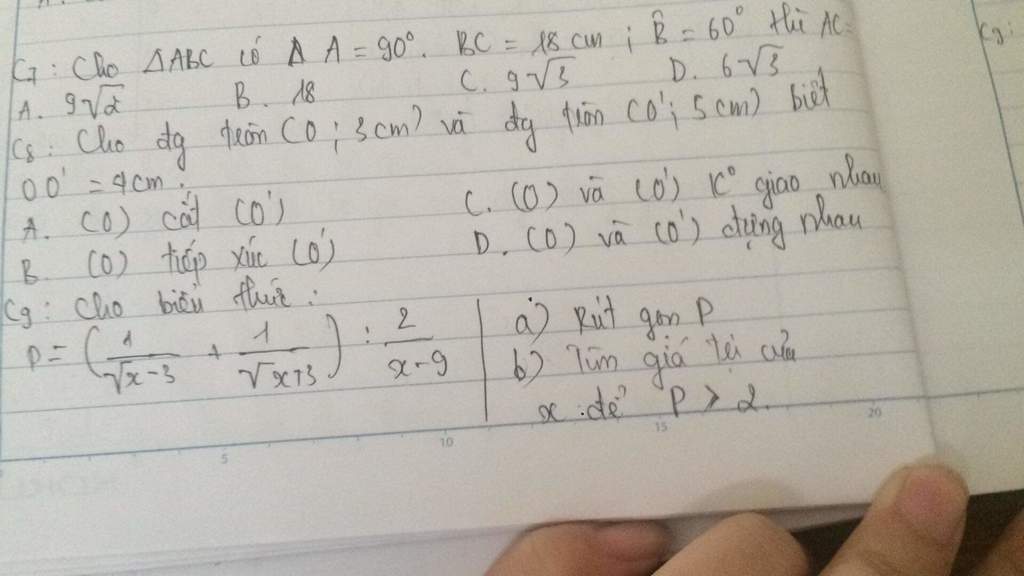 C7: Cho △ABC có A A = 90°. BC = 18 cm ; B̂ = 60° thì AC=
A. 9√2 B. 18 C. 9√3 D. 6√3
C8: Cho đg tròn (O ; 3cm) và đg tròn (O' ; 5cm) biết
OO' = 4cm.
A. (O) cắt (O') C. (O) và (O') K° giao nhau
B. (O) tiếp xúc (O') D. (O) và (O') đựng nhau
C9: Cho biểu thức:
P = (1/(√x-3) + 1/(√x+3)) : 2/(x-9)
a) Rút gọn P
b) Tìm giá trị của
x để P > 2.
5 10 15 20
C9: